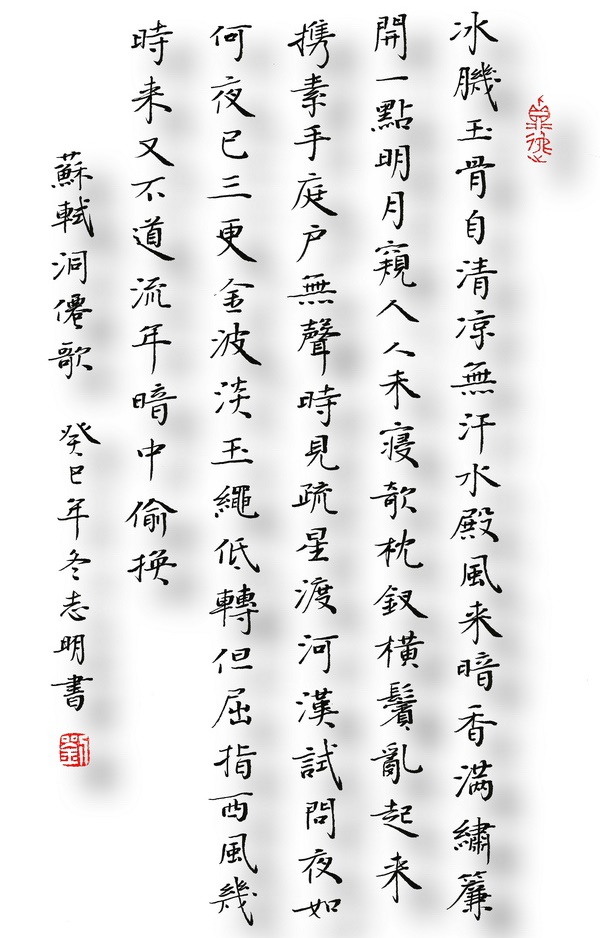 冰機玉骨自清涼無汗水殿風来暗香滿繡簾
開一點明月窺人人未寢欹枕釵橫鬢亂起来
携素手庭户無聲時見疏星渡河漢試問夜如
何夜已三更金波淡玉繩低轉但屈指西風幾
時来又不道流年暗中偷換
蘇軾洞僊歌 癸巳年冬志明書
劉